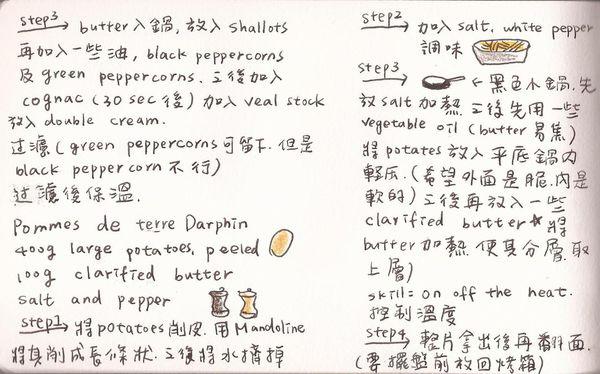 step3 → butter入鍋,放入 shallots
再加入一些油, black peppercorns
及 green peppercorns. 之後加入
cognac (30 sec 後) 加入 veal stock
放入 double cream.
过濾 (green peppercorns 可留下. 但是
black peppercorn 不行)
过濾後保溫.
Pommes de terre Darphin
400g large potatoes, peeled
100g clarified butter
salt and pepper
step1 → 將 potatoes 削皮. 用 Mandoline
將其削成長條狀. 之後將水擠掉
step2 → 加入 salt, white pepper
調味
step3 → ← 黑色小鍋. 先
放 salt 加熱 之後先用一些
vegetable oil (butter 易焦)
將 potates 放入平底鍋內
輕压. (希望外面是脆. 內是
軟的) 之後再放入一些
clarified butter* 將
butter 加熱 使其分層. 取
上層)
skill: on off the heat.
控制溫度
step4 → 整片拿出後再翻面.
(要擺盤前放回烤箱)